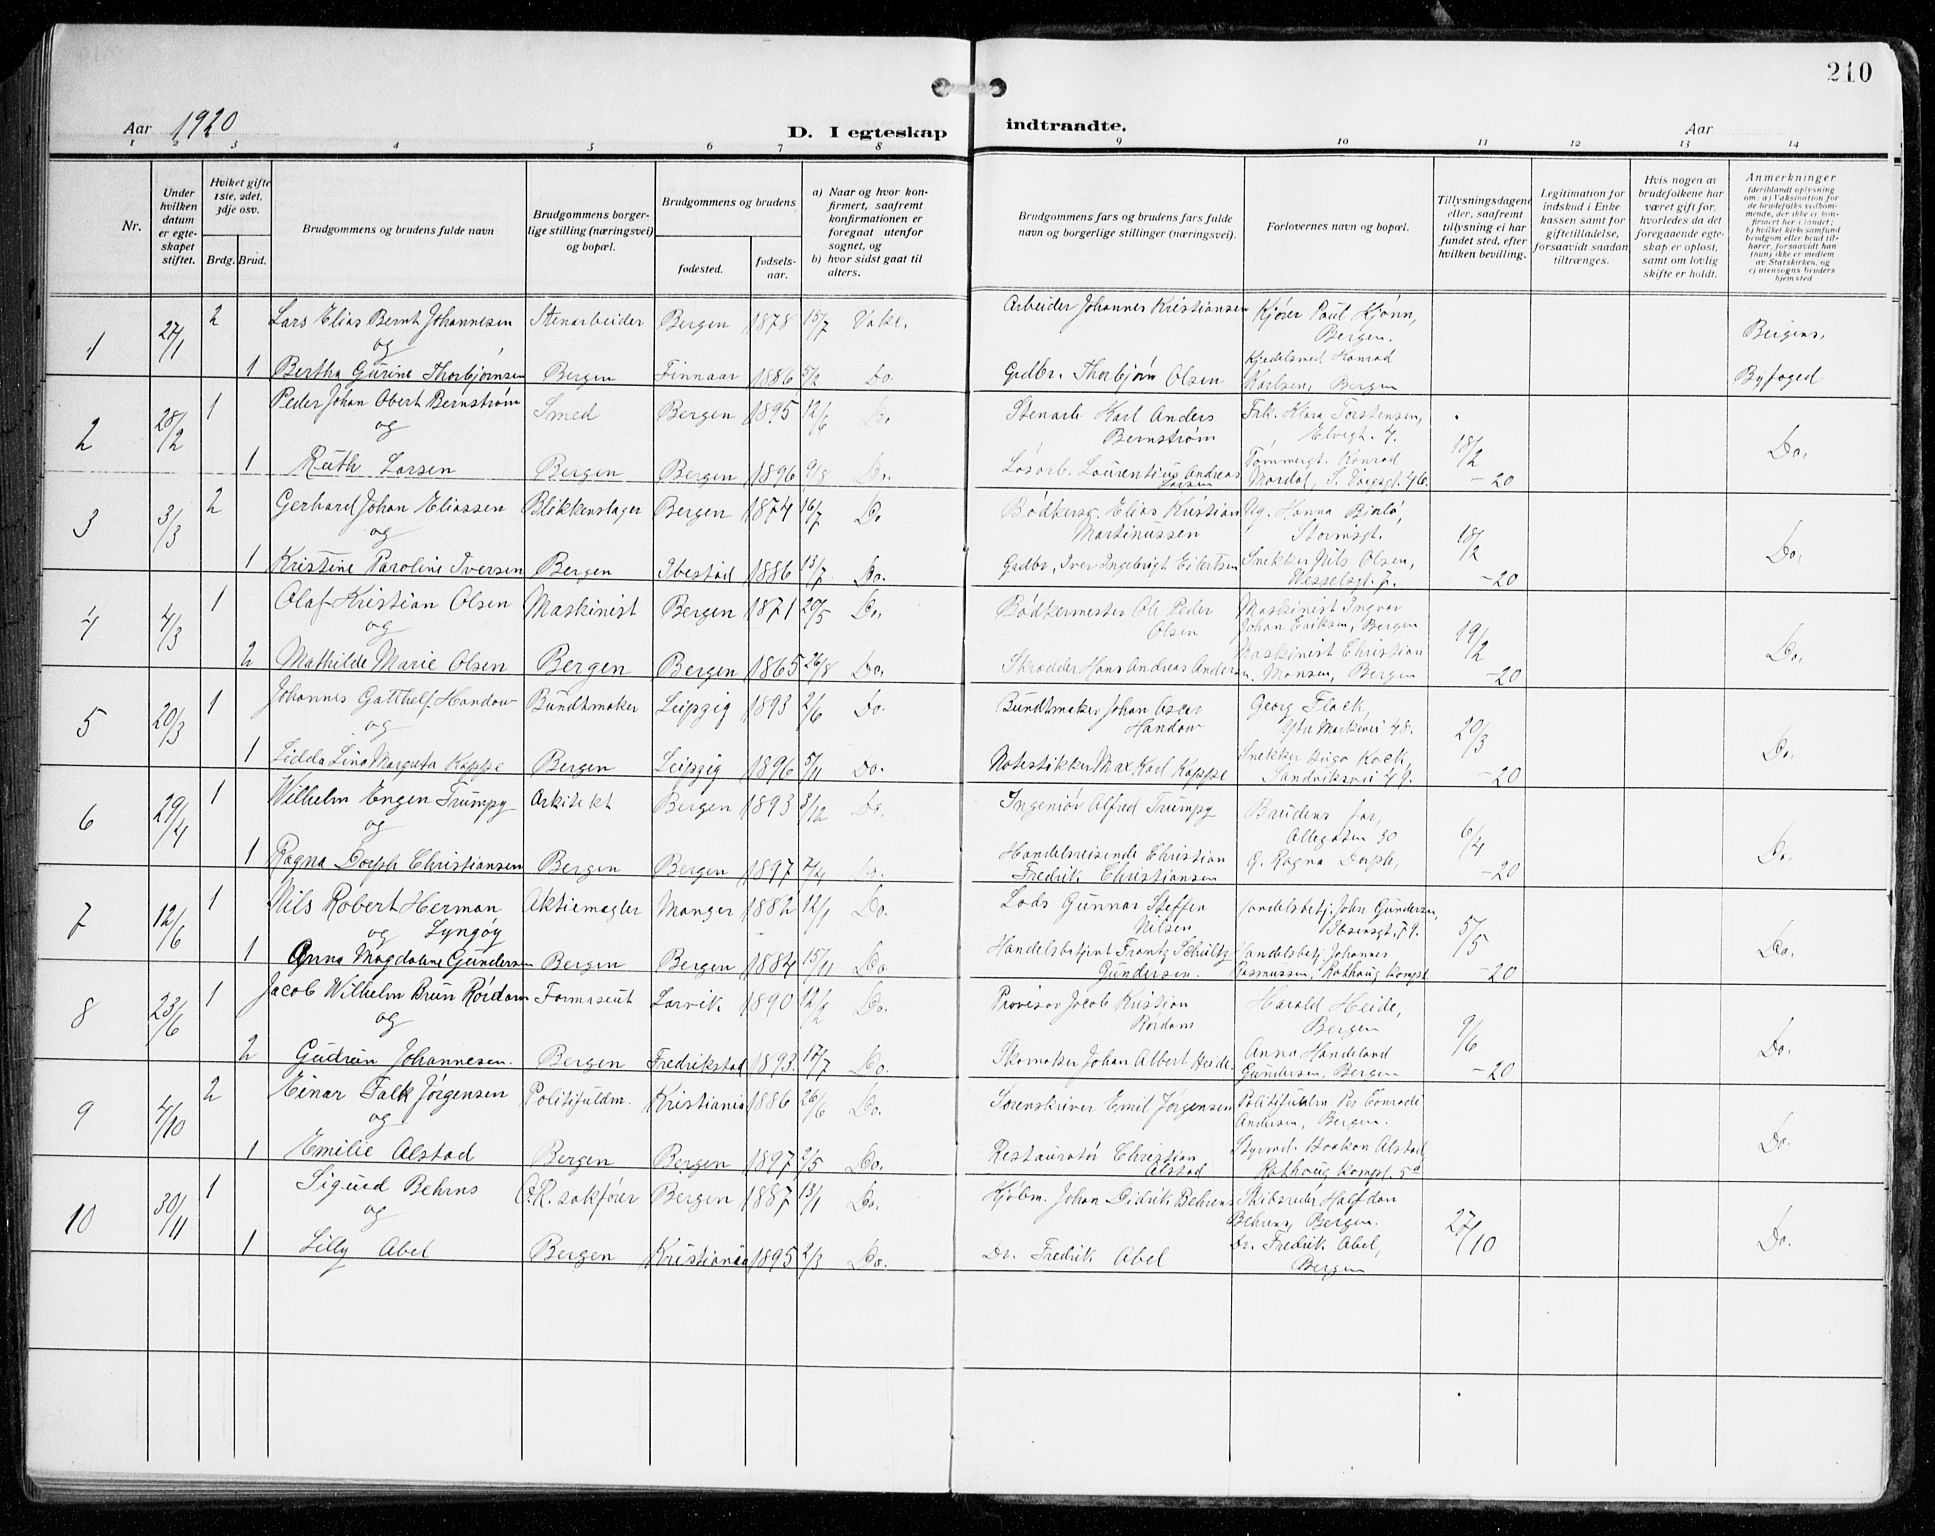 210
Aar 1920
D. I egteskap indtraadte.
Aar
1 2 3 4 5 6 7 8 9 10 11 12 13 14
Nr.
Under hvilken datum er egteskapet stiftet.
Hvilket gifte 1ste, 2det, 3dje osv.
Brdg. Brud.
Brudgommens og brudens fulde navn
Brudgommens borgerlige stilling (næringsvei) og bopæl.
Brudgommens og brudens
fødested. fødselsaar.
a) Naar og hvor konfirmert, saafremt konfirmationen er foregaat utenfor sognet, og
b) hvor sidst gaat til alters.
Brudgommens fars og brudens fars fulde navn og borgerlige stillinger (næringsvei).
Forlovernes navn og bopæl.
Tillysningsdagene eller, saafremt tillysning ei har fundet sted, efter hvilken bevilling.
Legitimation for indskud i Enkekassen samt for giftetilladelse, forsaavidt saadan tiltrænges.
Hvis nogen av brudefolkene har været gift før, hvorledes da det foregaaende egteskap er opløst, samt om lovlig skifte er holdt.
Anmerkninger
(deriblandt oplysning om: a) Vaksination for de brudefolks vedkommende, der ikke er konfirmert her i landet; b) hvilket kirkesamfund brudgom eller brud tilhører, forsaavidt han (hun) ikke er medlem av Statskirken, og c) utensogns bruders hjemsted
1 27/1 2 Lars Elias Bernt Johannesen Stenarbeider Bergen 1878 15/7 Arbeider Johannes Kristiansen Kjører Paul Kjønn, Bergen. Bergens
og
1 Bertha Gurine Thorbjørnsen Bergen Finnaas 1886 5/2 Do. Grdbr. Thorbjørn Olsen Kjedelsmed Konrad Karlsen, Bergen Byfoged
2 28/2 1 Peder Johan Obert Bernström Smed Bergen 1895 12/6 Do. Stenarb. Karl Anders Bernström Frk. Klara Torstensen, Elvegt. 4. 18/2 Do.
og
1 Ruth Larsen Bergen Bergen 1896 9/8 Do. Løsarb. Laurentius Andreas Larsen Tømmergt. Konrad Mardal, -20
3 3/3 2 Gerhard Johan Eliassen Blikkenslager Bergen 1874 16/7 Do Bødkersv. Elias Kristian Martinussen Hanna Stormsgt. 18/2 Do.
og
1 Kristine Paroline Iversen Bergen Ibestad 1886 13/7 Do. Grdbr. Iver Ingebrigt Eilertsen Snekker Nils Olsen, Wesselsgt. 7. -20
4 4/3 1 Olaf Kristian Olsen Maskinist Bergen 1871 20/5 Do. Bødkermester Ole Peder Olsen Maskinist Ingvar Johan Eriksen, Bergen 19/2 Do.
og
2 Mathilde Marie Olsen Bergen Bergen 1865 26/8 Do. Skrædder Hans Andreas Andersen Maskinist Christian Monsen, Bergen -20
5 20/3 1 Johannes Gotthelf Handow Bundtmaker Leipzig 1893 2/6 Do. Bundtmaker Johan Oscar Handow Georg Flach, Ytre Markevei 48. 20/3 Do.
og
1 Lidda Lina Margreta Kappe Bergen Leipzig 1896 5/11 Do. Notestikker Max Karl Kappe Snekker Hugo Koch, Sandviksvei 49. -20
6 29/4 1 Wilhelm Engen Trumpy Arkitekt Bergen 1893 3/12 Do. Ingeniør Alfred Trumpy Brudens far, Allegaten 30 6/4 Do.
og
1 Ragna Dorph Christiansen Bergen Bergen 1897 Do. Handelsreisende Christian Fredrik Christiansen Ragna Dorph, -20
7 12/6 1 Nils Robert Herman Lyngøy Aktiemægler Manger 1882 12/1 Do. Lods Gunnar Steffen Nilsen Handelsbetj. John Gundersen, Ibsensgt. 79. 5/5 Do.
og
1 Anna Magdalene Gundersen Bergen Bergen 1884 15/11 Do. Handelsbetjent Frantz Schultz Gundersen. Handelsbetj. Johannes Rasmussen, Rothaug kompl. -20
8 23/6 1 Jacob Wilhelm Brun Rördam Farmaseut Larvik 1890 12/2 Do. Provisor Jacob Kristian Rördam Harald Heide, Bergen 9/6 Do.
og
2 Gudrun Johannesen. Bergen Fredrikstad 1893. 17/7 Do. Skomaker Johan Albert Heide Anna Handeland Gundersen, Bergen -20
9 4/10 2 Einar Falk Jørgensen Politifuldm. Kristiania 1886 26/6 Do. Sorenskriver Emil Jørgensen Politifuldm. Per Conradi Andersen, Bergen. Do.
og
1 Emilie Alstad Bergen Bergen 1897 2/5 Do. Restauratør Christian Alstad Styrmd. Haakon Alstad, Rothaug kompl. 5a
10 30/11 1 Sigurd Behrns O.R. sakfører Bergen 1887 13/1 Do. Kjøbm. Johan Didrik Behrens Skibsreder Halfdan Behrens, Bergen. 27/10 Do.
og
1 Lilly Abel Bergen Kristiania 1895 2/3 Do. Dr. Fredrik Abel Dr. Fredrik Abel, Bergen